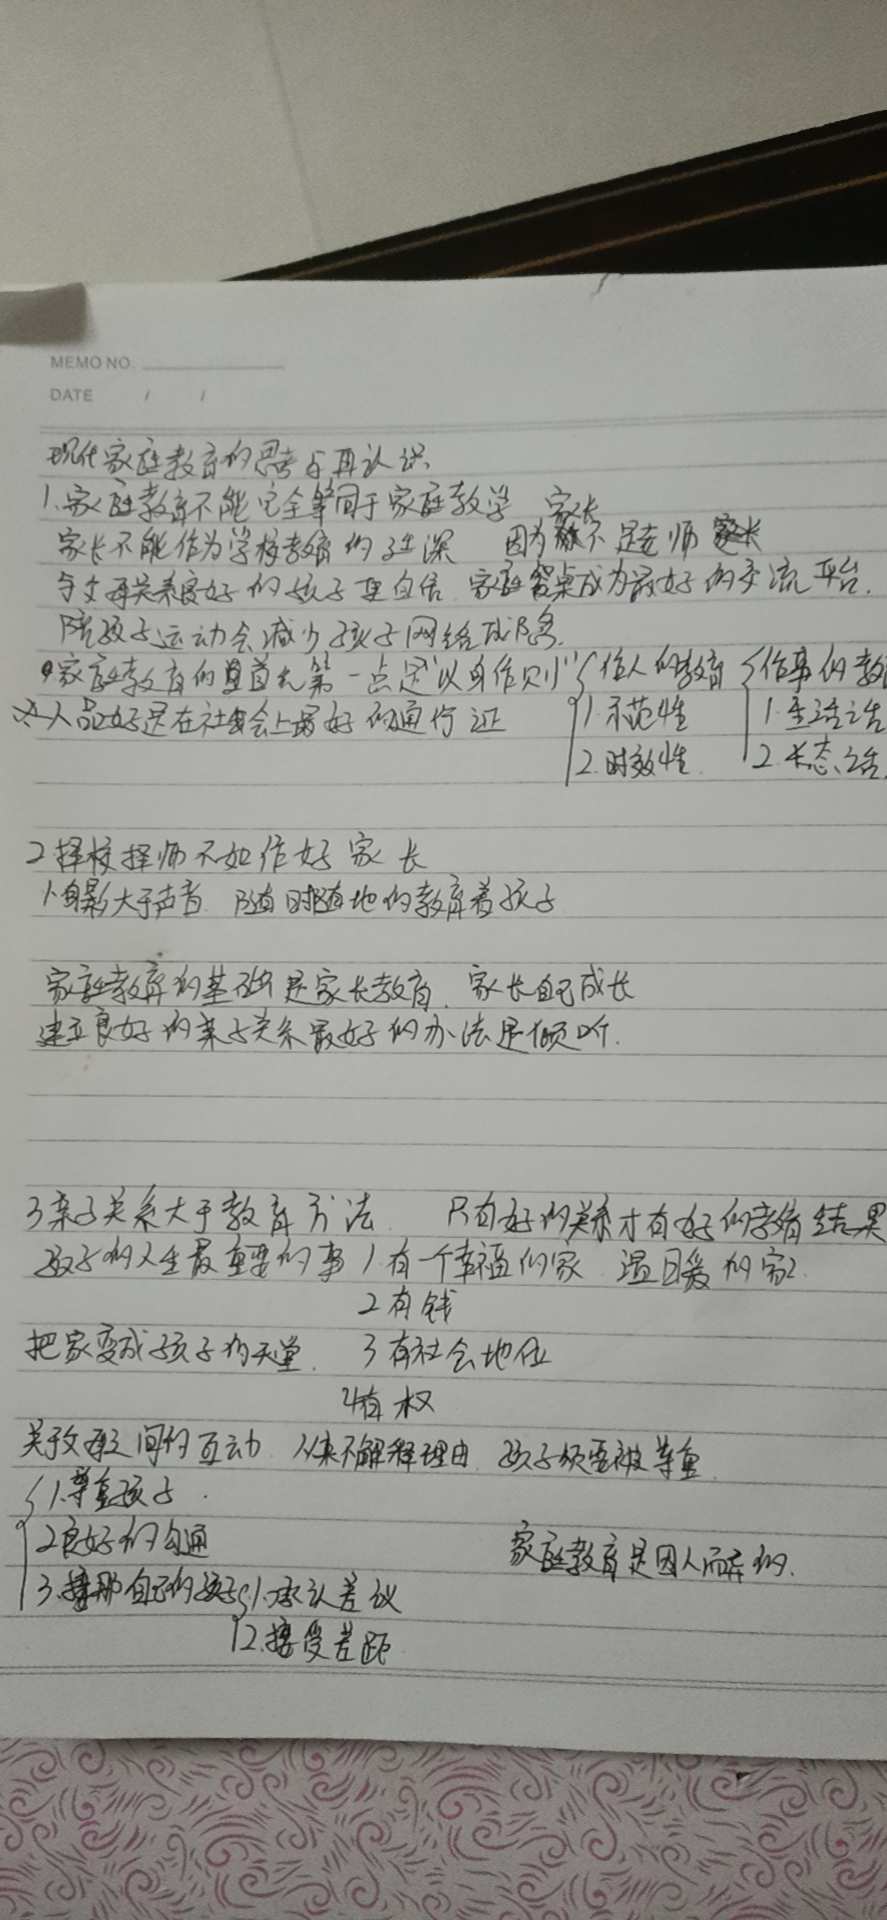 MEMO NO.
DATE / /
现代家庭教育的思考与再认识
1.家庭教育不能完全等同于家庭教学 家长
家长不能作为学校教育的 因为 不是老师 家长
与父母关系良好的孩子更自信 家庭餐桌成为最好的交流平台.
陪孩子运动会减少孩子网络成隐.
家庭教育的 首先第一点是"以身作则" 作人的教育 作事的教育
人品好是在社会上最好的通行证 1.示范性 1.生活活
2.时效性. 2.长态活
2 择校择师不如作好家长
身影大于声音 随时随地的教育着孩子
家庭教育的基础是家长教育. 家长自己成长
建立良好的亲子关系最好的办法是倾听.
3 亲子关系大于教育方法 只有好的关系才有好的教育结果
孩子的人生最重要的事 1 有一个幸福的家 温暖的家
2 有钱
把家变成孩子的天堂. 3 有社会地位
4 有权
关于父母之间的互动 从来不解释理由 孩子须要被尊重
1.尊重孩子.
2 良好的勾通
家庭教育是因人而 的.
3. 自己的孩子 1.承认差
2.接受差距